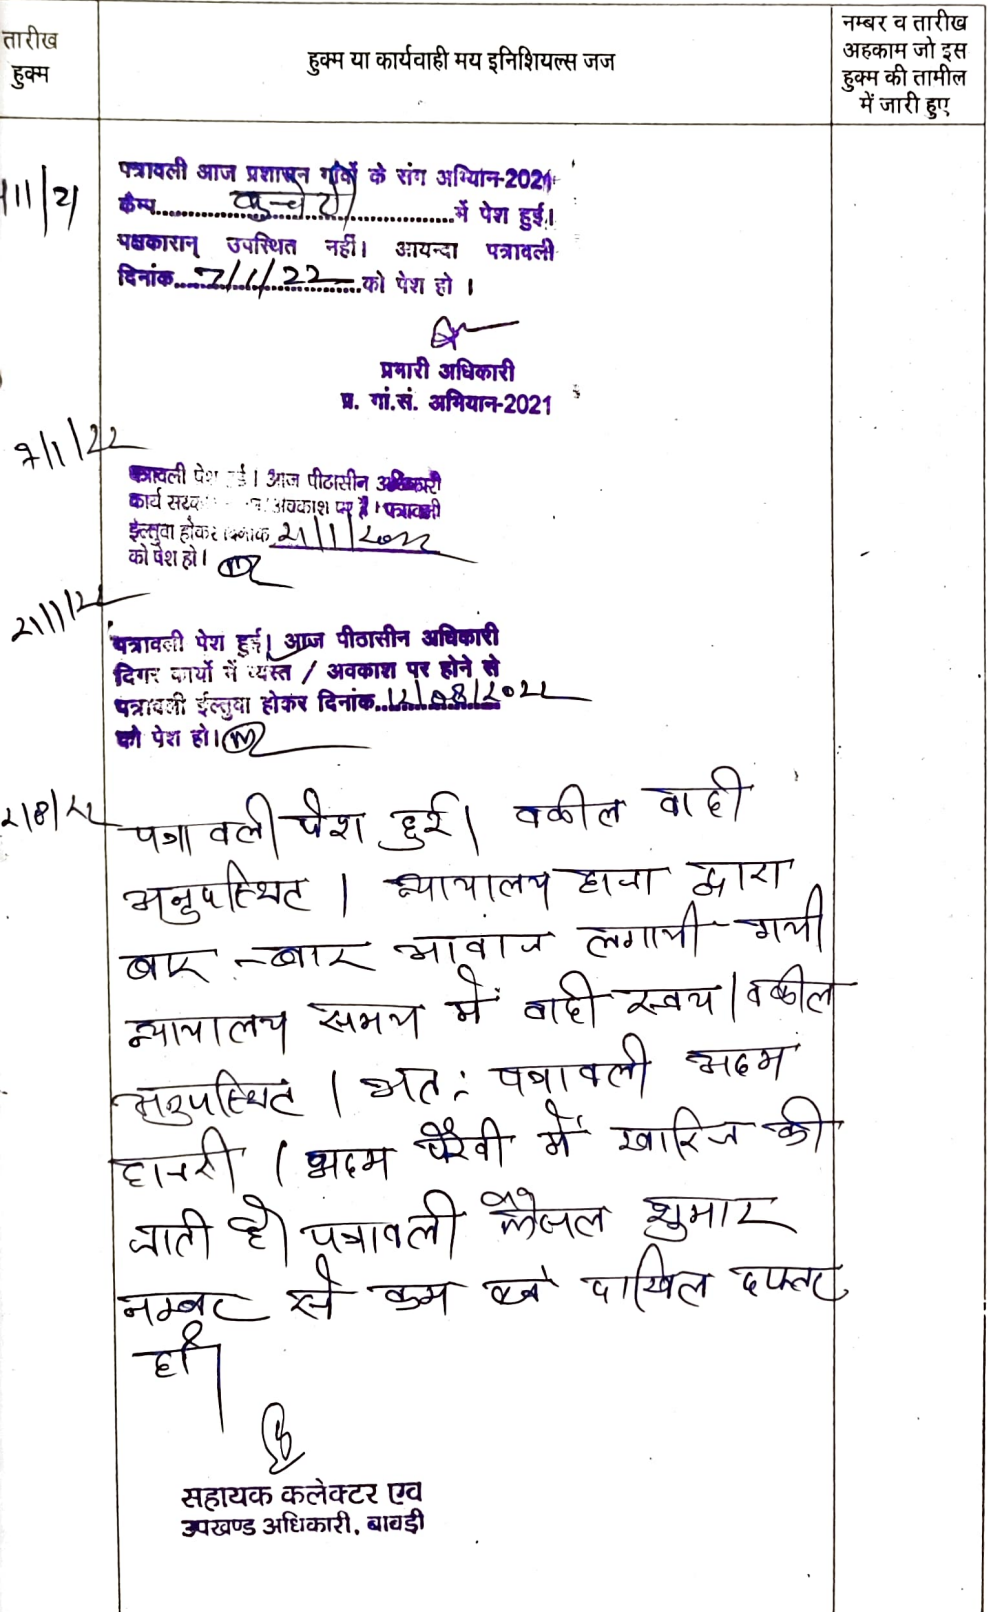 तारीख
हुक्म
हुक्म या कार्यवाही मय इनिशियल्स जज
नम्बर व तारीख
अहकाम जो इस
हुक्म की तामील
में जारी हुए
11/21
पत्रावली आज प्रशासन गांवों के संग अभियान-2021
कैम्प.....................में पेश हुई।
पक्षकारान् उपस्थित नहीं। आयन्दा पत्रावली
दिनांक...7/1/22...को पेश हो ।
प्रभारी अधिकारी
प्र. गां.सं. अभियान-2021
7/1/22
पत्रावली पेश हुई। आज पीठासीन अधिकारी
कार्य अवकाश पर है। पत्रावली
ईल्तुवा होकर दिनांक 21/1/2022
को पेश हो।
21/1/22
पत्रावली पेश हुई। आज पीठासीन अधिकारी
दिगर कार्यो में व्यस्त / अवकाश पर होने से
पत्रावली ईल्तुवा होकर दिनांक..12/08/2022
को पेश हो।
2/8/22
पत्रावली पेश हुई। वकील वादी
अनुपस्थित । न्यायालय हाजा द्वारा
बार-बार आवाज लगायी गयी
न्यायालय समय में वादी स्वय/वकील
अनुपस्थित । अत: पत्रावली अदम
हाजरी / अदम पैरवी में खारिज की
जाती है। पत्रावली फैसल शुमार
नम्बर से कम दाखिल दफ्तर
हो।
सहायक कलेक्टर एव
उपखण्ड अधिकारी, बावड़ी